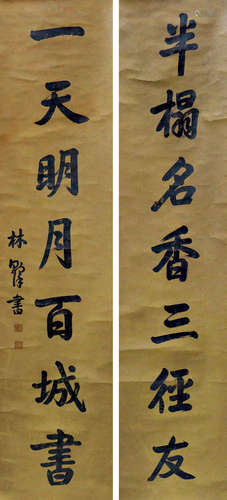 半榻名香三徑友
一天明月百城書
林則徐書